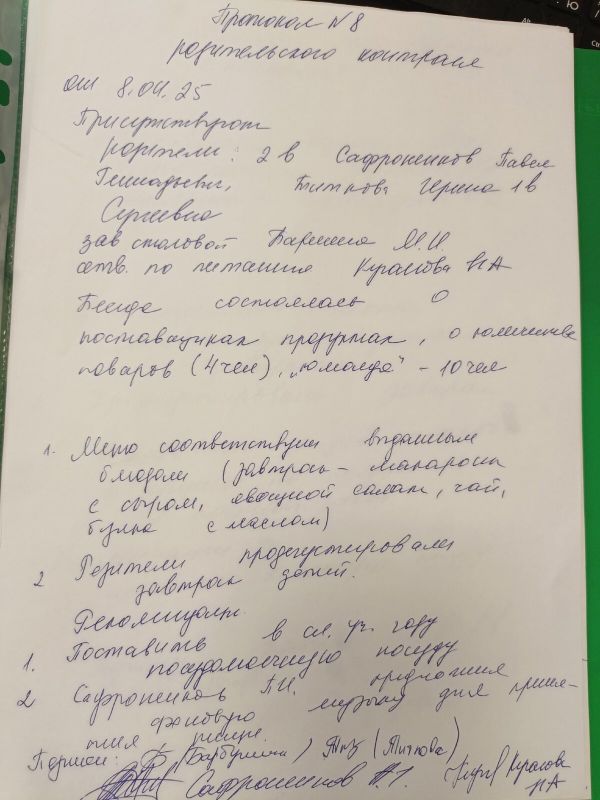 Протокол № 8
родительского контроля
от 8.04.25
Присутствуют
родители: 2 в Сафроненков Павел
Геннадьевич, Титкова Герина 1 в
Сергеевна
зав столовой М.И.
отв. по питанию Курапова НА
Беседа состоялась о
поставщиках продуктах, о количестве
поваров (4 чел), „команда" - 10 чел
1. Меню соответствует выданным
блюдам (завтрак - макароны
с сыром, овощной салат, чай,
булка с маслом)
2 Родители продегустировали
завтрак детей.
Рекомендации.
1. Поставить в сл. уч. году
посудомоечную посуду
2 Сафроненков П.Г. предложил
фоновую музыку для приня-
тия пищи.
Подписи: (Титкова)
Сафроненков П.Г. Курапова
НА